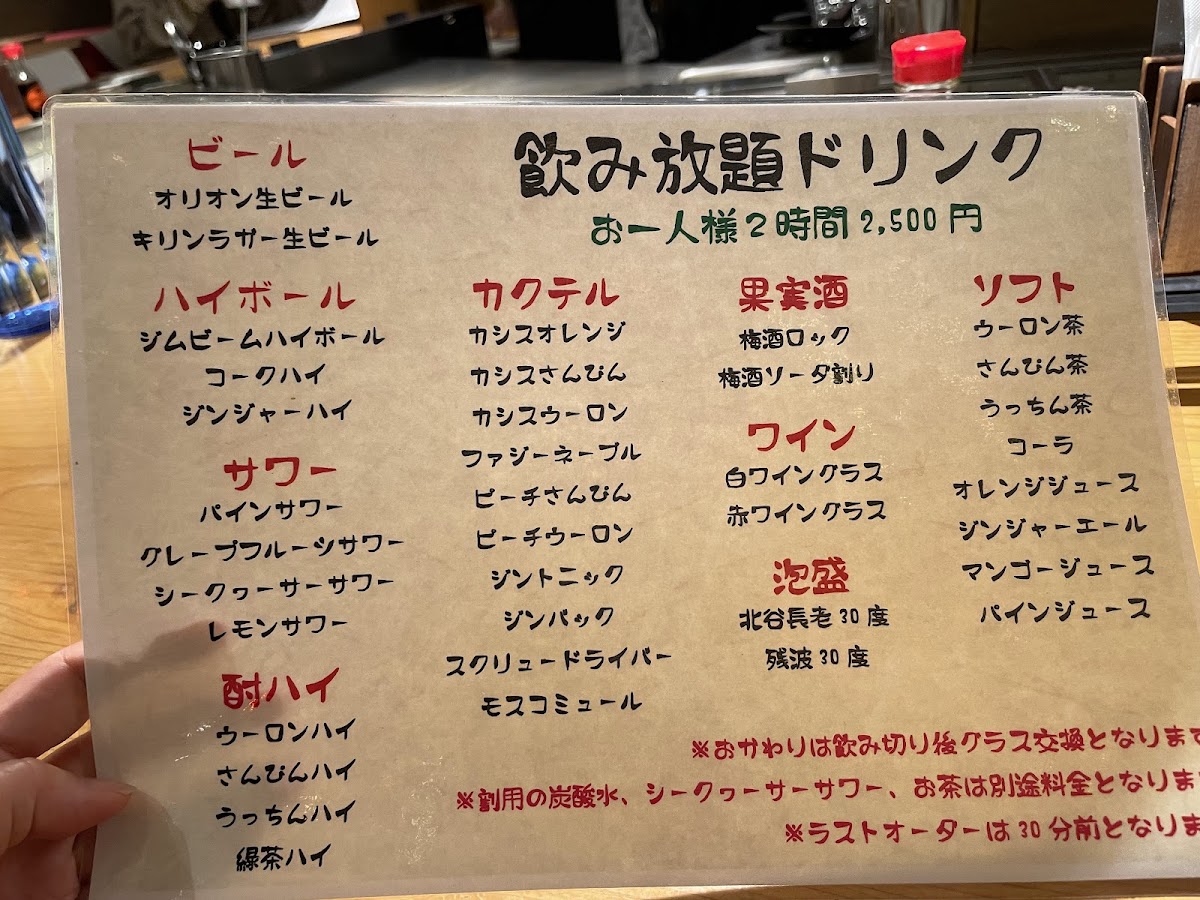 飲み放題ドリンク
お一人様2時間2,500円
ビール
オリオン生ビール
キリンラガー生ビール
ハイボール
ジムビームハイボール
コークハイ
ジンジャーハイ
サワー
パインサワー
グレープフルーツサワー
シークヮーサーサワー
レモンサワー
酎ハイ
ウーロンハイ
さんぴんハイ
うっちんハイ
緑茶ハイ
カクテル
カシスオレンジ
カシスさんぴん
カシスウーロン
ファジーネーブル
ピーチさんぴん
ピーチウーロン
ジントニック
ジンバック
スクリュードライバー
モスコミュール
果実酒
梅酒ロック
梅酒ソーダ割り
ワイン
白ワイングラス
赤ワイングラス
泡盛
北谷長老30度
残波30度
ソフト
ウーロン茶
さんぴん茶
うっちん茶
コーラ
オレンジジュース
ジンジャーエール
マンゴージュース
パインジュース
※おかわりは飲み切り後グラス交換となります
※割用の炭酸水、シークヮーサーサワー、お茶は別途料金となりま
※ラストオーダーは30分前となりま